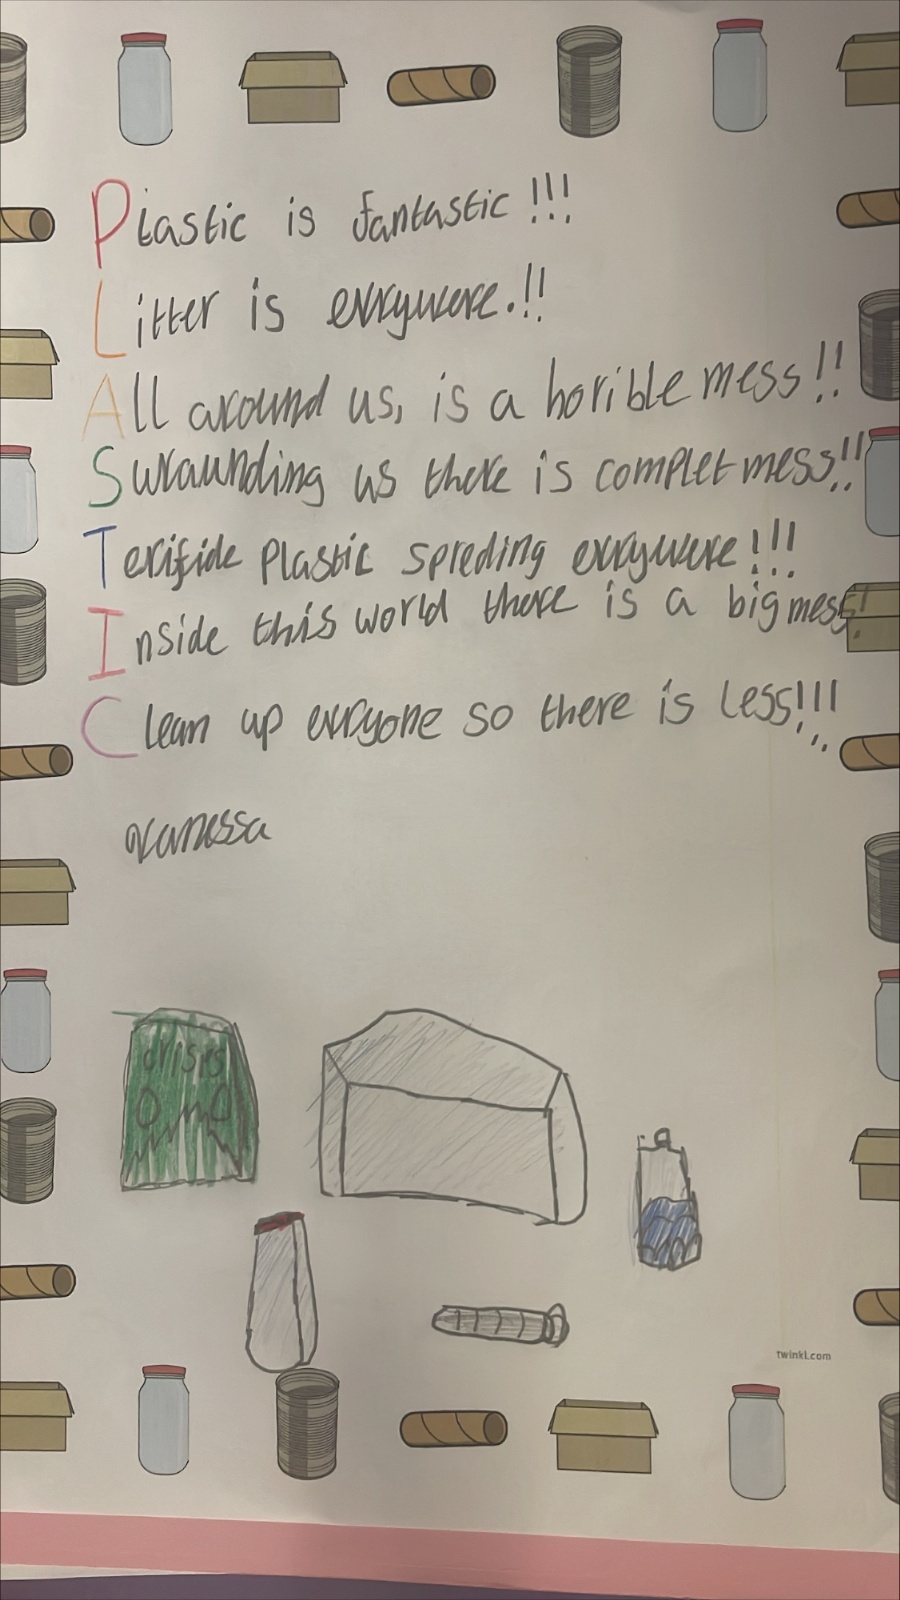 Plastic is fantastic!!!
Litter is evrywere.!!
All around us, is a horible mess!!
Suraunding us there is complet mess!!
Terifide plastic spreding evrywere!!!
Inside this world there is a big mess!
Clean up evryone so there is less!!!
Vanessa
crisps
twinkl.com